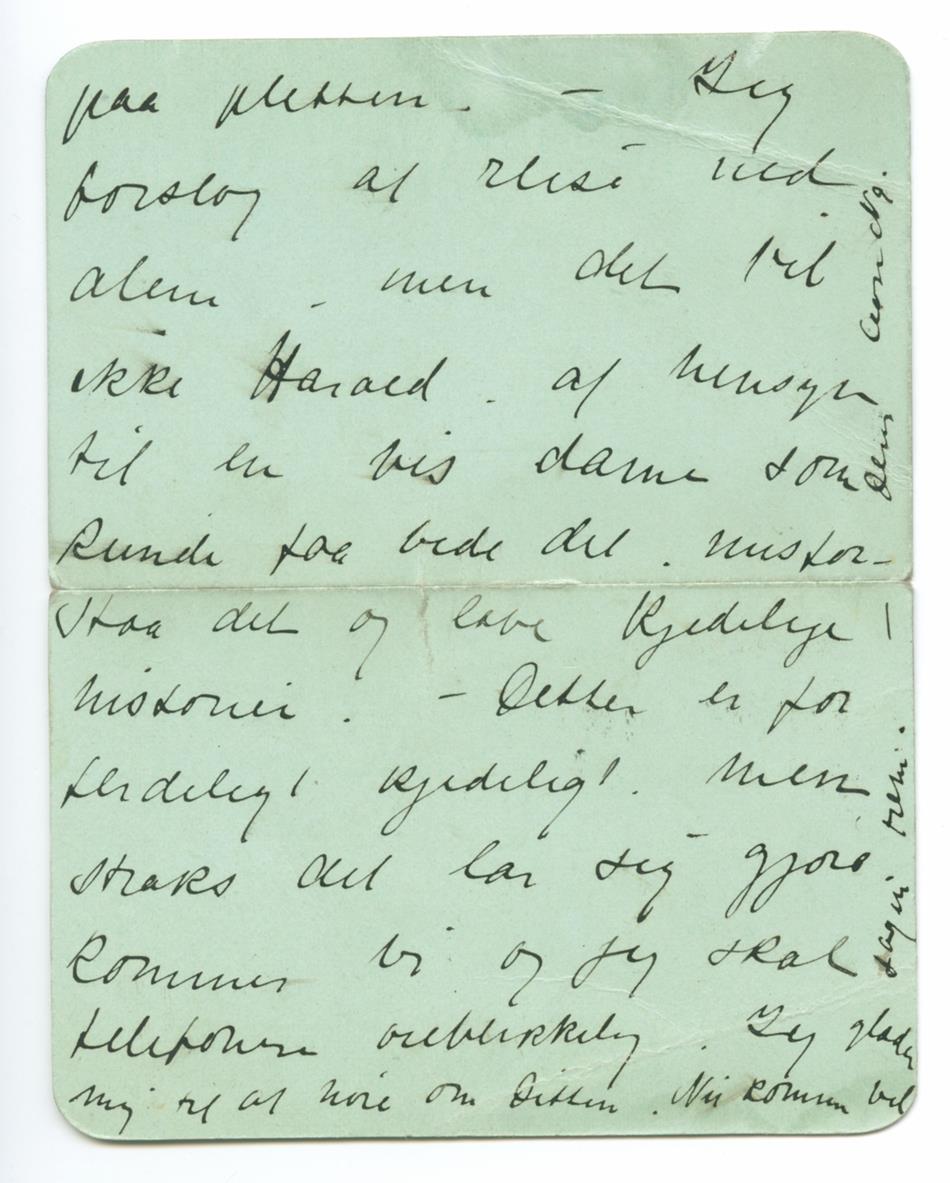 paa pletten. – Jeg
forslog at reise ned
alene, men det vil
ikke Harald. af hensyn
til en vis dame som
kunde faa bede det. misfor-
staa det og lave kjedelige
historier. – Dette er for
ferdeligt kjedeligt. Men
straks det lar sig gjøre
kommer vi og jeg skal
telefonere øieblikkelig. Jeg glæder
mig til at høre om Sitten. Nu kommer vel
sagen rem.
Deres